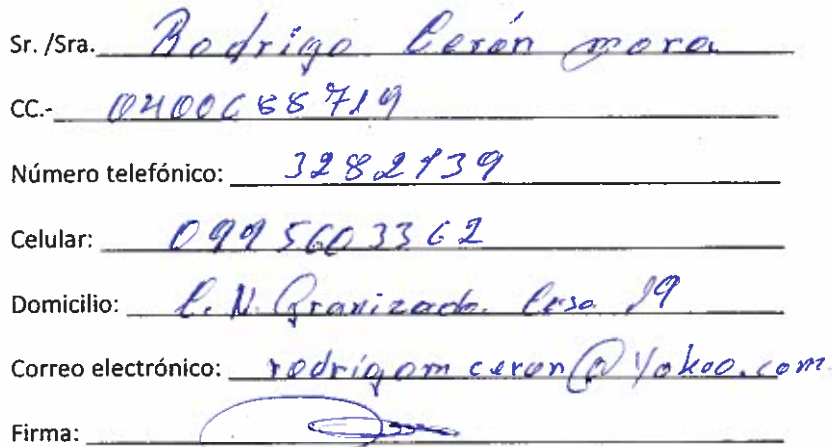 Sr. /Sra. Rodrigo Cerón mora
CC.- 0400688719
Número telefónico: 3282139
Celular: 0995603362
Domicilio: C. N. Granizado Casa 19
Correo electrónico: rodrigomceron@yahoo.com
Firma: